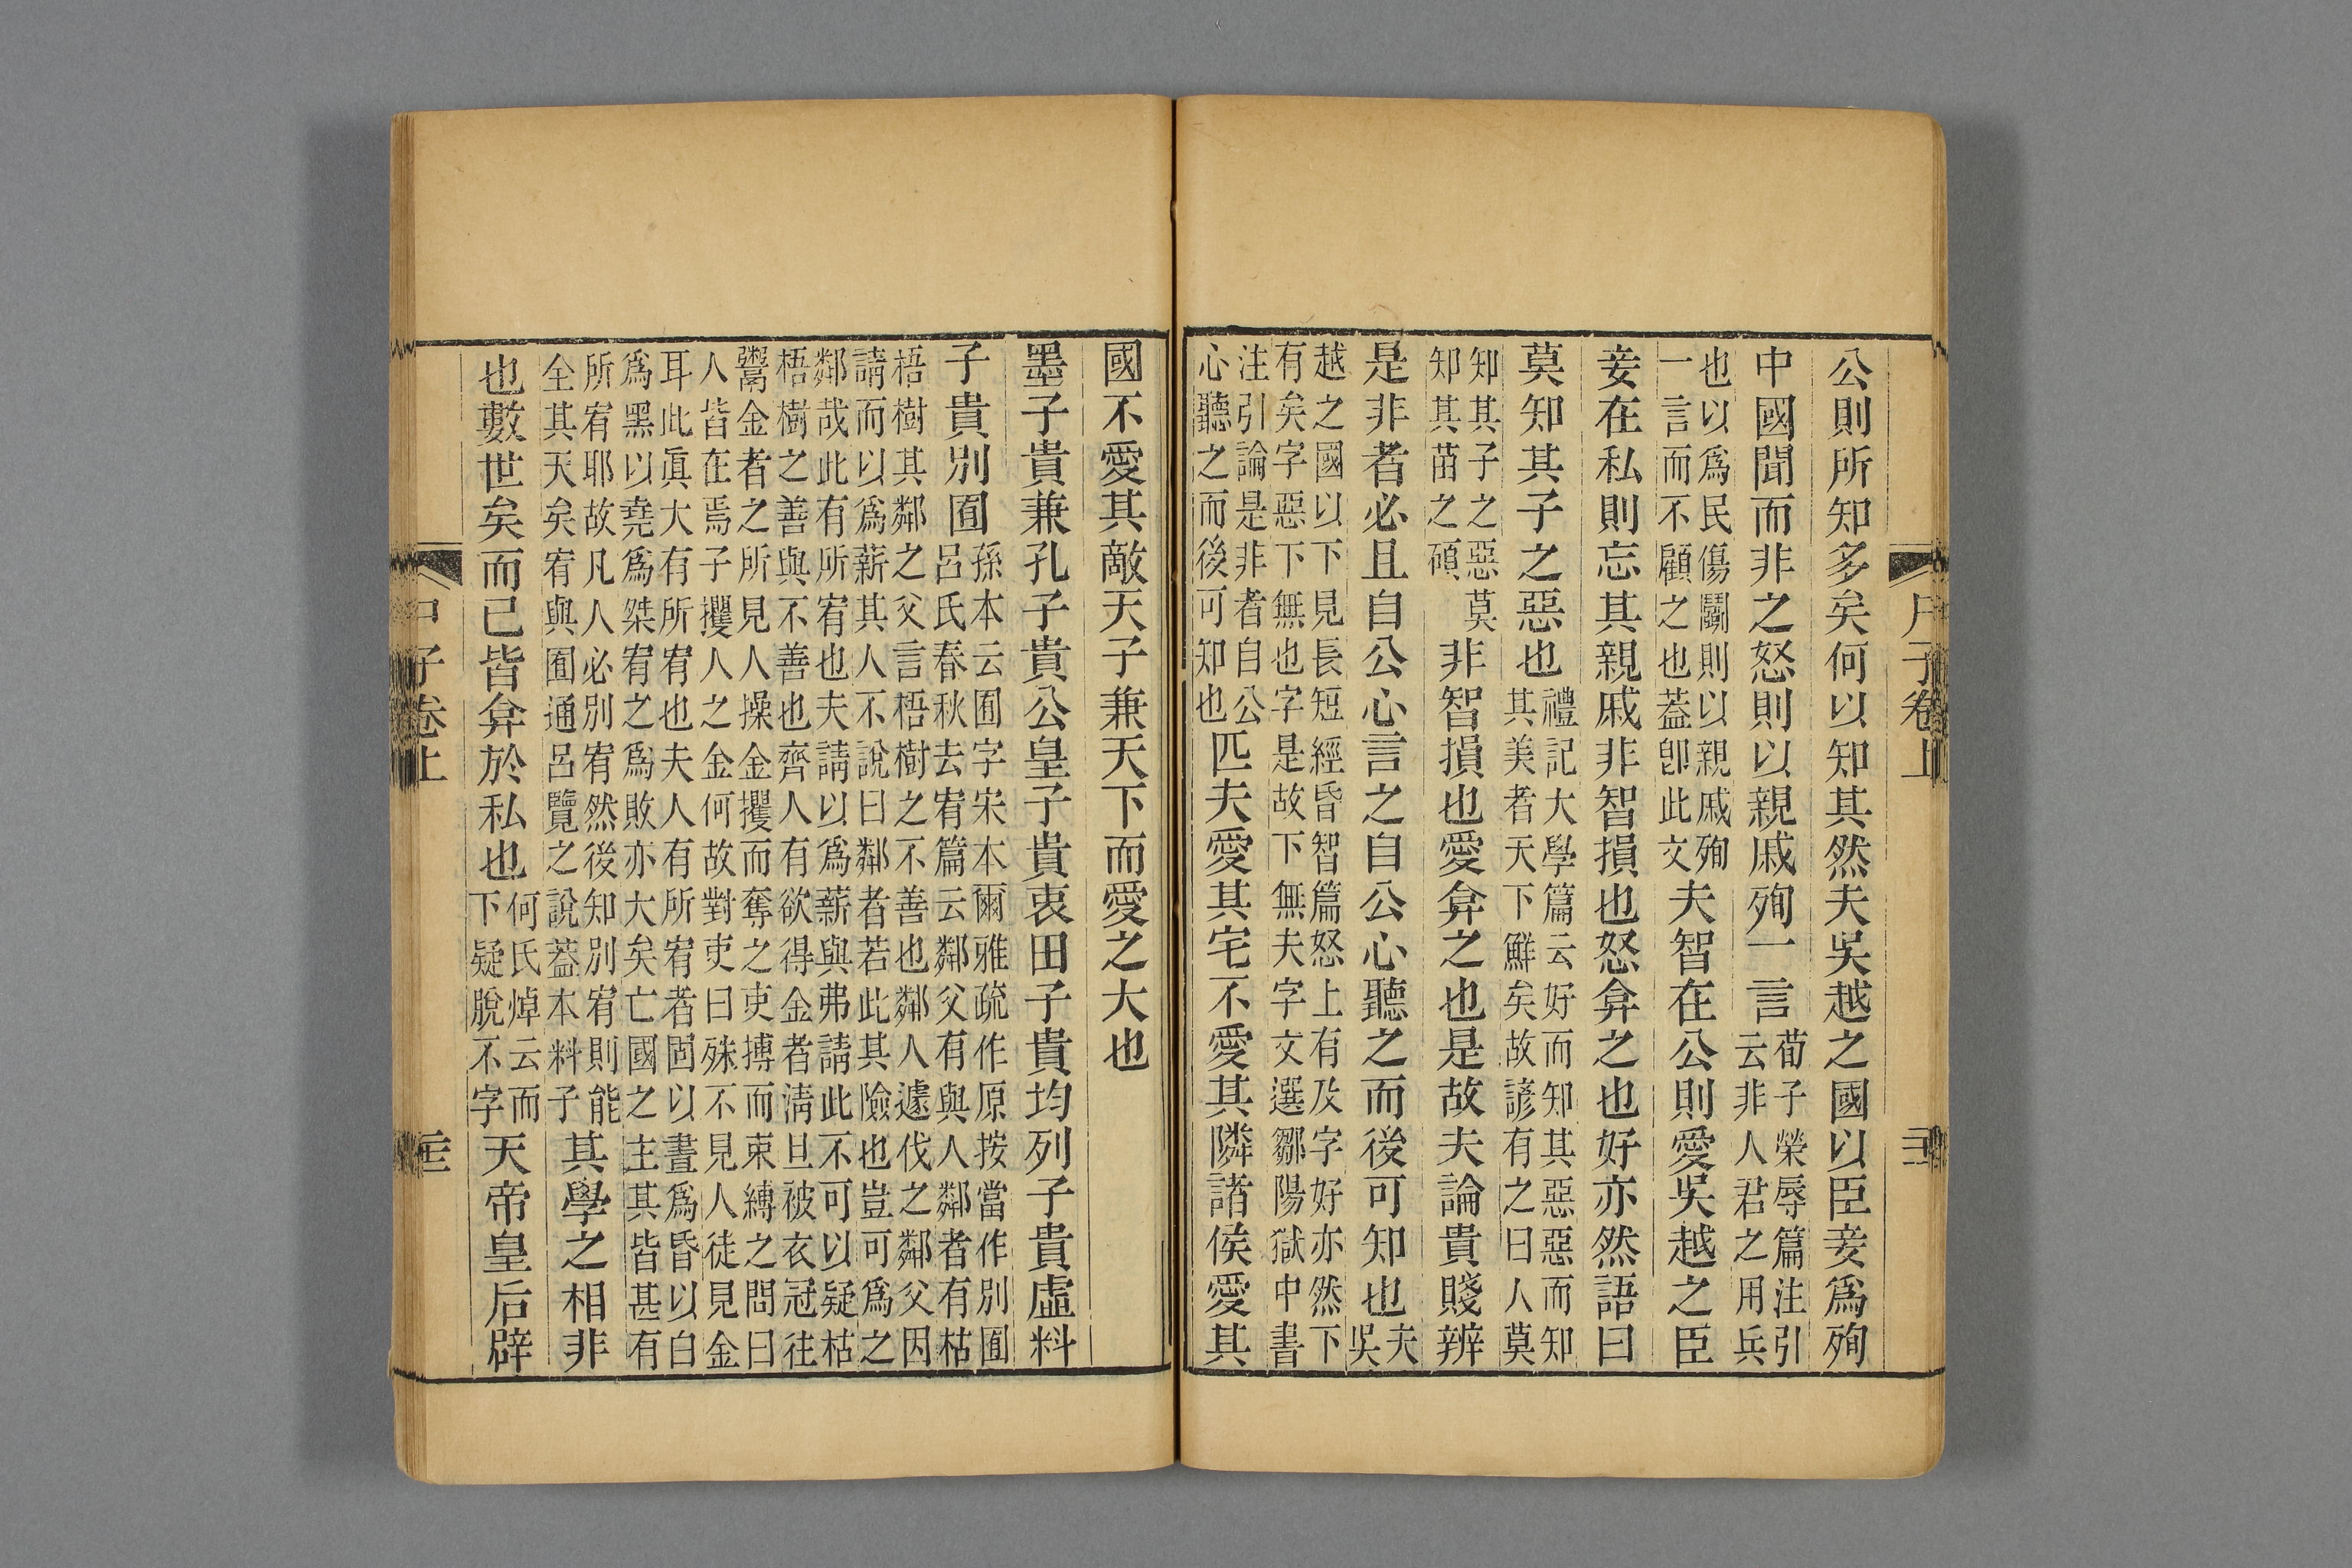 公則所知多矣何以知其然夫吳越之國以臣妾爲殉
中國聞而非之怒則以親戚殉一言荀子榮辱篇注引云非人君之用兵
也以爲民傷鬭則以親戚殉一言而不顧之也蓋卽此文夫智在公則愛吳越之臣
妾在私則忘其親戚非智損也怒弇之也好亦然語曰
莫知其子之惡也禮記大學篇云好而知其惡惡而知其美者天下鮮矣故諺有之曰人莫
知其子之惡莫知其苗之碩非智損也愛弇之也是故夫論貴賤辨
是非者必且自公心言之自公心聽之而後可知也夫吳
越之國以下見長短經昏智篇怒上有及字好亦然下有矣字惡下無也字是故下無夫字文選鄒陽獄中書
注引論是非者自公心聽之而後可知也匹夫愛其宅不愛其隣諸侯愛其
尸子卷上
國不愛其敵天子兼天下而愛之大也
墨子貴兼孔子貴公皇子貴衷田子貴均列子貴虛料
子貴別囿孫本云囿字宋本爾雅疏作原按當作別囿呂氏春秋去宥篇云鄰父有與人鄰者有枯
梧樹其鄰之父言梧樹之不善也鄰人遽伐之鄰父因請而以爲薪其人不說曰鄰者若此其險也豈可爲之
鄰哉此有所宥也夫請以爲薪與弗請此不可以疑枯梧樹之善與不善也齊人有欲得金者淸旦被衣冠往
鬻金者之所見人操金攫而奪之吏搏而束縛之問曰人皆在焉子攫人之金何故對吏曰殊不見人徒見金
耳此眞大有所宥也夫人有所宥者固以晝爲昏以白爲黑以堯爲桀宥之爲敗亦大矣亡國之主其皆甚有
所宥耶故凡人必別宥然後知別宥則能全其天矣宥與囿通呂覽之說蓋本料子其學之相非
也數世矣而已皆弇於私也何氏焯云而下疑脫不字天帝皇后辟
子卷上